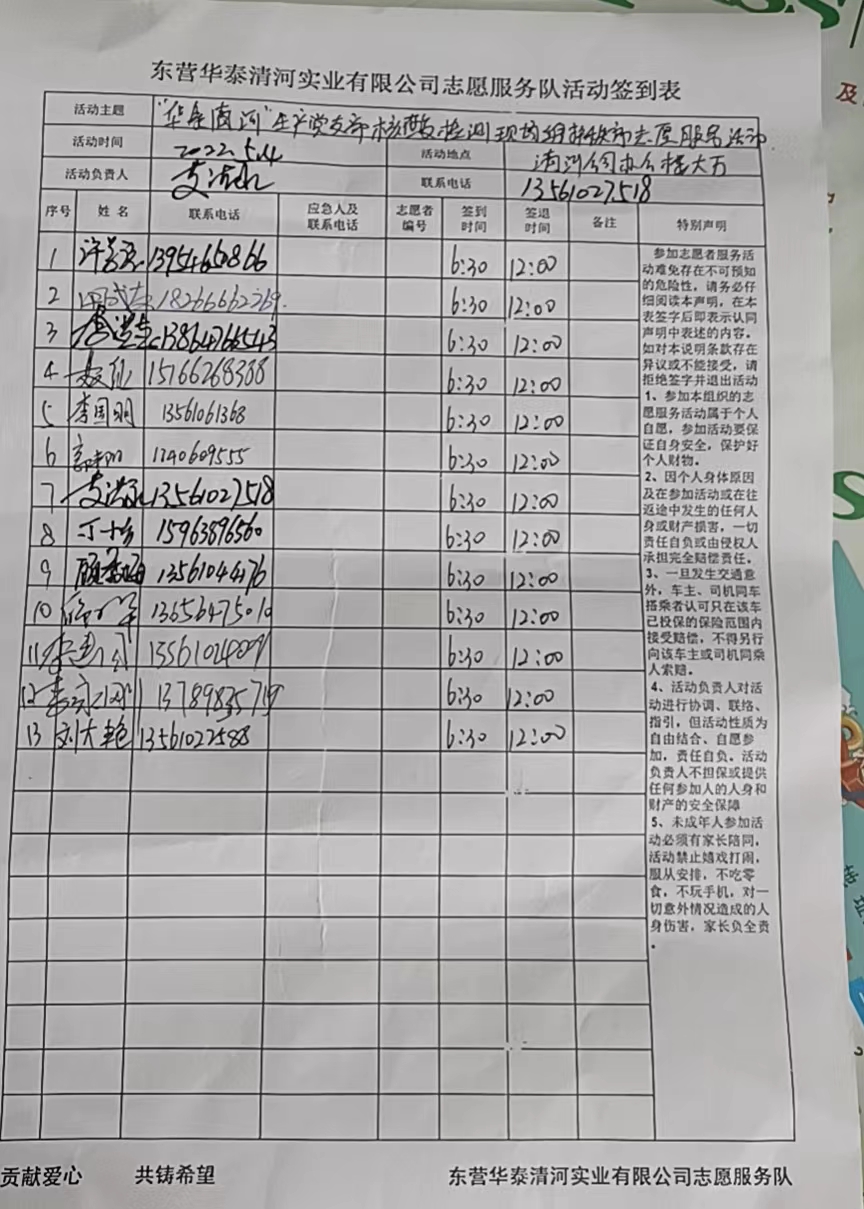 东营华泰清河实业有限公司志愿服务队活动签到表
活动主题 "华泰清河"生产党支部核酸检测现场组织秩序志愿服务活动
活动时间 2022.5.4 活动地点 清河公司办公楼大厅
活动负责人 联系电话 13561027518
序号 姓名 联系电话 应急人及联系电话 志愿者编号 签到时间 签退时间 备注 特别声明
1 13954650866 6:30 12:00
2 18266662769. 6:30 12:00
3 13864766543 6:30 12:00
4 15166268388 6:30 12:00
5 李国明 13561061368 6:30 12:00
6 1240609555 6:30 12:00
7 13561027518 6:30 12:00
8 15963896560 6:30 12:00
9 13561044176 6:30 12:00
10 6:30 12:00
11 6:30 12:00
12 13789835719 6:30 12:00
13 刘大艳 13561022588 6:30 12:00
参加志愿者服务活
动难免存在不可预知
的危险性，请务必仔
细阅读本声明，在本
表签字后即表示认同
声明中表述的内容。
如对本说明条款存在
异议或不能接受，请
拒绝签字并退出活动
1、参加本组织的志
愿服务活动属于个人
自愿，参加活动要保
证自身安全，保护好
个人财物。
2、因个人身体原因
及在参加活动或在往
返途中发生的任何人
身或财产损害，一切
责任自负或由侵权人
承担完全赔偿责任。
3、一旦发生交通意
外，车主、司机同车
搭乘者认可只在该车
已投保的保险范围内
接受赔偿，不得另行
向该车主或司机同乘
人索赔。
4、活动负责人对活
动进行协调、联络、
指引，但活动性质为
自由结合、自愿参
加，责任自负。活动
负责人不担保或提供
任何参加人的人身和
财产的安全保障
5、未成年人参加活
动必须有家长陪同，
活动禁止嬉戏打闹，
服从安排，不吃零
食，不玩手机，对一
切意外情况造成的人
身伤害，家长负全责
。
贡献爱心 共铸希望 东营华泰清河实业有限公司志愿服务队